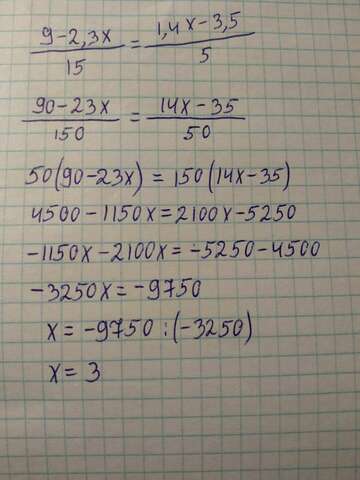 (9-2,3x)/15 = (1,4x-3,5)/5
(90-23x)/150 = (14x-35)/50
50(90-23x)=150(14x-35)
4500-1150x=2100x-5250
-1150x-2100x=-5250-4500
-3250x=-9750
x=-9750:(-3250)
x=3